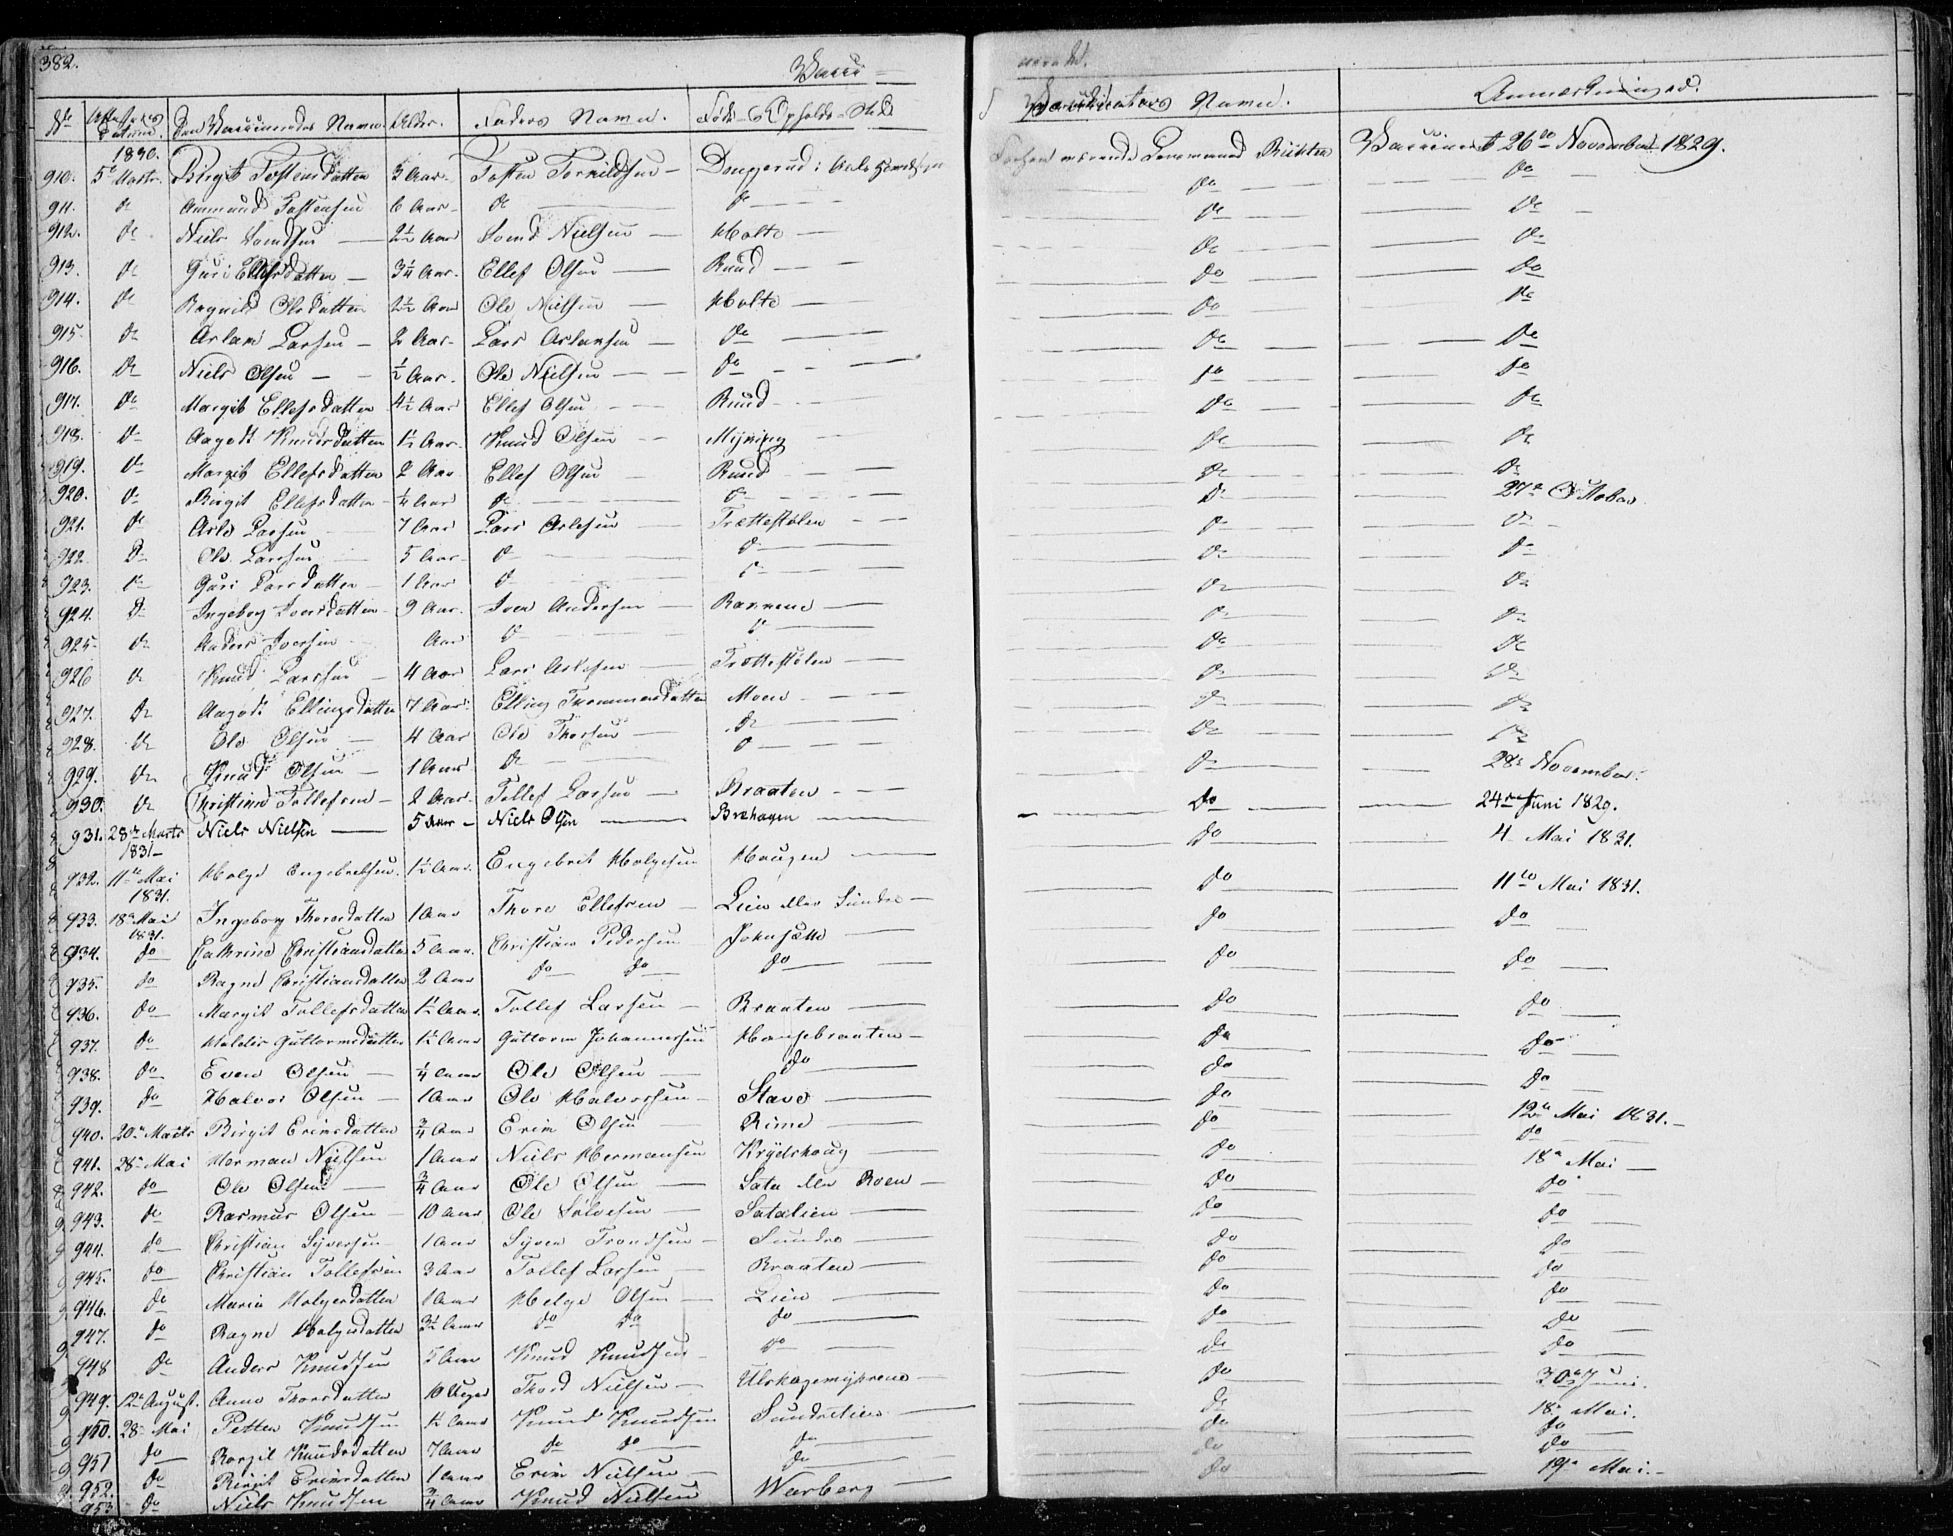 382.
No Den Vaccineredes Navn. Alder. Faders Navn. Føde- Opholds-Sted Vaccinateurs Navn. Anmærkninger.
1830.
910. 5te Marts Birgit Tostensdatter 3 Aar Tosten Torkildsen Vaccineret 26de November 1829.
911. do Ammund Tostensen 6 Aar do do do do
912. do Niels Svendsen 2½ Aar Svend Nielsen Holte do do
913. do Guri Ellefsdatter 3¼ Aar Ellef Olsen Ruud do do
914. do Ragnild Olsdatter 2½ Aar Ole Nielsen Holte do do
915. do Aslam Larsen 2 Aar Lars Aslamsen do do do
916. do Niels Olsen ½ Aar Ole Nielsen do do do
917. do Margit Ellefsdatter 4½ Aar Ellef Olsen Ruud do do
918. do Aagodt Knudsdatter 1½ Aar Knud Olsen Myning do do
919. do Margit Ellefsdatter 2 Aar Ellef Olsen Ruud do do
920. do Birgit Ellefsdatter ¼ Aar do do do 27de October
921. do Asle Larsen 7 Aar Lars Aslesen Trættestølen do do
922. do Ole Larsen 5 Aar do do do do
923. do Guri Larsdatter 1 Aar do do do do
924. do Ingeborg Iversdatter 9 Aar Iver Andersen do do
925. do Anders Iversen Aar do do do do
926 do Knud Larsen 4 Aar Lars Aslesen Trættestølen do do
927. do Aagodt Ellingsdatter 7 Aar Elling Moen do do
928. do Ole Olsen 4 Aar Ole Thorsen do do do
929. do Knud Olsen 1 Aar do do do 28de November
930. do Christine Tollefsen 2 Aar Tollef Larsen Braaten do 24de Juni 1829.
931. 28de Marts 1831 Niels Nielsen 5 Aar Niels Olsen Brehagen do 4 Mai 1831.
932. 11te Mai 1831. Helge Engebretsen 1½ Aar Engebret Helgesen Haugen do 11te Mai 1831.
933. 18de Mai 1831. Ingeborg Thoresdatter 1 Aar Thore Ellefsen Lien eller Sundre do do
934. do Cathrine Christiansdatter 5 Aar Christian Pedersen Johnsætte do do
935. do Ragne Christiansdatter 2 Aar do do do do do
936. do Margit Tollefsdatter 1½ Aar Tollef Larsen Braaten do do
937. do Guttormsdatter 1½ Aar Guttorm Johannessen Hansebraaten do do
938. do Even Olsen ¼ Aar Ole Olsen do do do
939. do Halvor Olsen 1 Aar Ole Halvorsen Stave do 12te Mai 1831.
940. 20de Marts Birgit Erimsdatter ¾ Aar Erim Olsen Rime do do
941. 28de Mai Herman Nielsen 1 Aar Niels Hermansen Krydshoug do 18de Mai
942. do Ole Olsen ¾ Aar Ole Olsen Sata eller Roen do do
943. do Rasmus Olsen 10 Aar Ole Satalien do do
944. do Christian Syversen 1 Aar Syver Trondsen Sundre do do
945. do Christian Tollefsen 3 Aar Tollef Larsen Braaten do do
946. do Maria Helgesdatter 1 Aar Helge Olsen Lien do do
947. do Ragne Helgesdatter 3½ Aar do do do do do
948 do Anders Knudsen 5 Aar Knud Knudsen do do do
949. 12te August. Anne Thoresdatter 10 Uger Thord Nielsen do 30de Juni.
950. 28de Mai Petter Knudsen 1½ Aar Knud Knudsen Sundrelien do 18de Mai.
951 do Knudsdatter 7 Aar do do do do do
952. do Birgit Erimsdatter 1 Aar Erim Nielsen do do do
953 do Niels Knudsen ¾ Aar Knud Nielsen Warberg do 19de Mai.